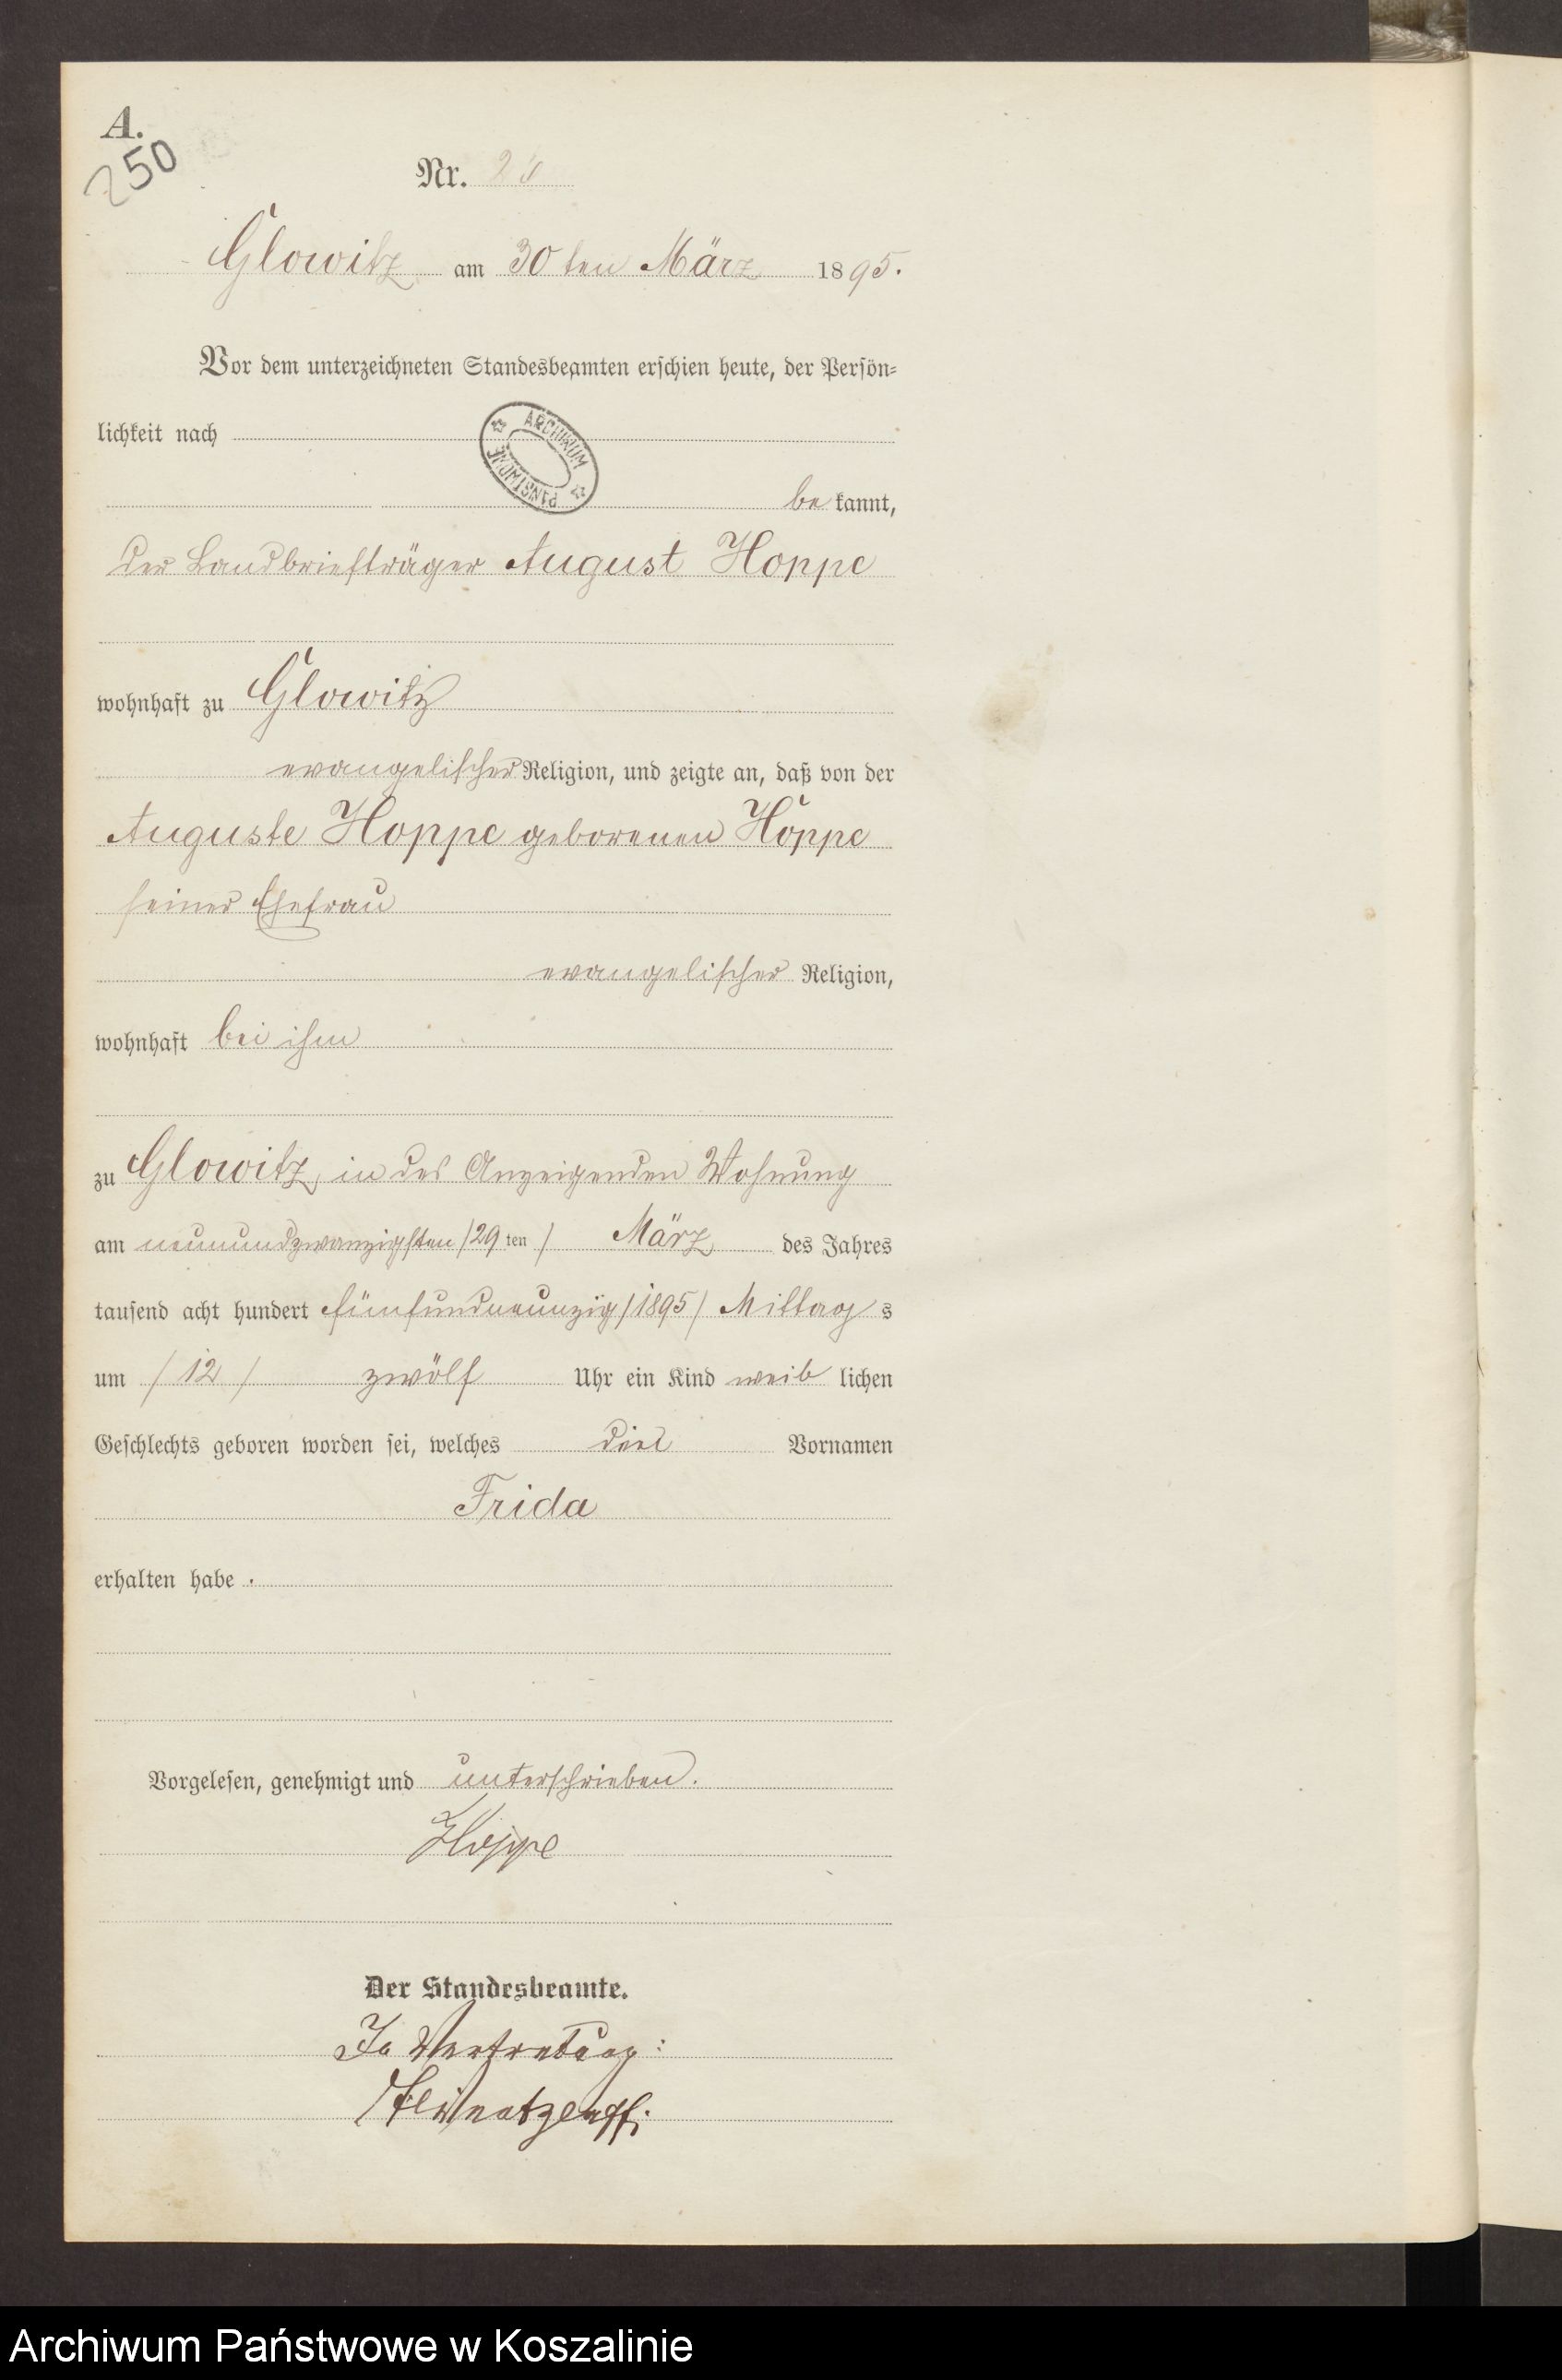 A.
250
Nr.
Glowitz am 30 ten März 1895.
Vor dem unterzeichneten Standesbeamten erschien heute, der Persön-
lichkeit nach
ARCHIWUM PAŃSTWOWE
be kannt,
der Landbriefträger August Hoppe
wohnhaft zu Glowitz
evangelischer Religion, und zeigte an, daß von der
Auguste Hoppe geborenen Hoppe
seiner Ehefrau
evangelischer Religion,
wohnhaft bei ihm
zu Glowitz, in des Anzeigenden Wohnung
am neunundzwanzigsten /29 ten / März des Jahres
tausend acht hundert fünfundneunzig /1895/ Mittag s
um / 12 / zwölf Uhr ein Kind weib lichen
Geschlechts geboren worden sei, welches Vornamen
Frida
erhalten habe .
Vorgelesen, genehmigt und unterschrieben.
Hoppe
Der Standesbeamte.
In Vertretung:
Archiwum Państwowe w Koszalinie